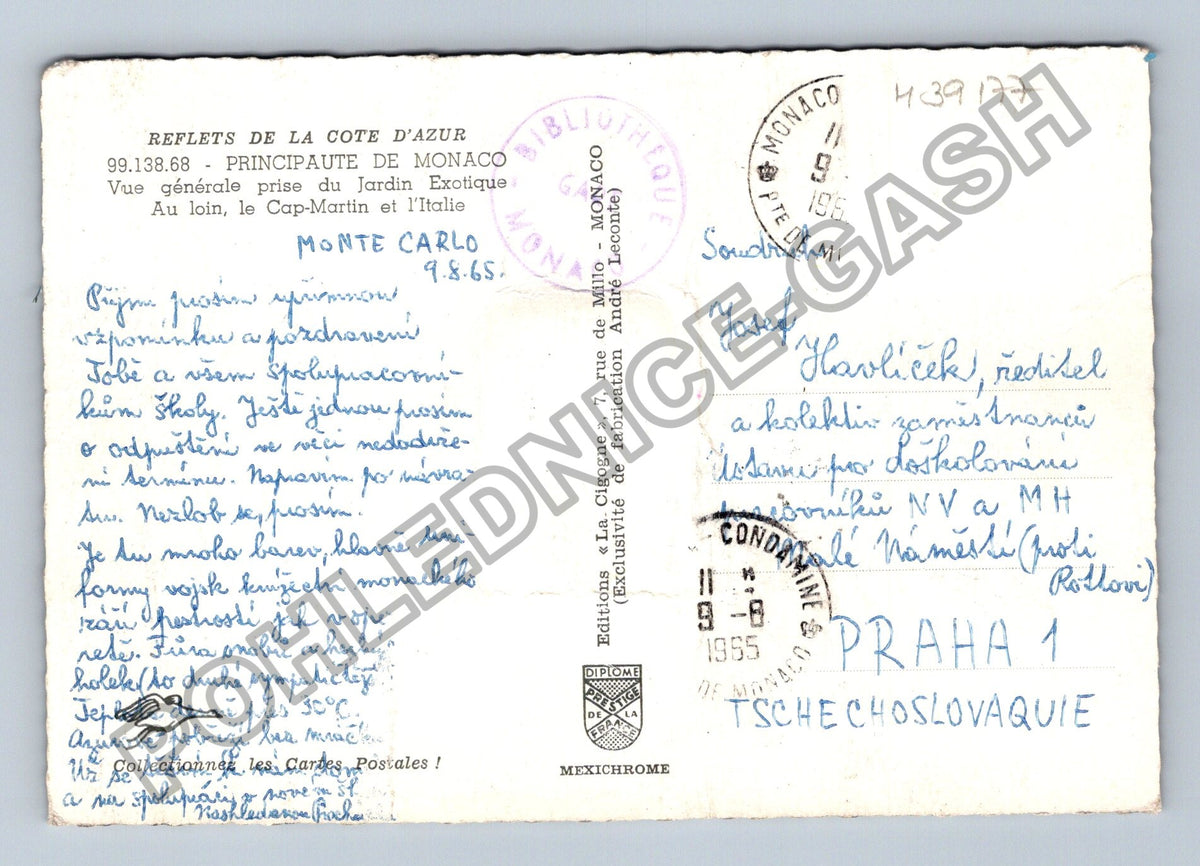 H39177
REFLETS DE LA COTE D'AZUR
99.138.68 - PRINCIPAUTE DE MONACO
Vue générale prise du Jardin Exotique
Au loin, le Cap-Martin et l'Italie
BIBLIOTHEQUE
MONACO
MONTE CARLO
9.8.65.
Přijm prosím upřímnou
vzpomínku a pozdravení
Tobě a všem spolupracovní-
kům školy. Ještě jednou prosím
o odpuštění ve věci nedodrže-
ní termínu. Napravím po návra-
tu. Nezlob se, prosím.
Je tu moho barev, hlavně uni-
formy vojsk knížectví monackého
září pestrostí jak v ope-
retě. Fůra
holek (to druhé
Teplo denně přes 30°C
pobřeží bez
Už se těším
a na spolupráci v novém šk
Nashledanou
Collectionnez les Cartes Postales !
Editions « La Cigogne », 7, rue de Millo - MONACO
(Exclusivité de fabrication André Leconte)
DIPLOME
PRESTIGE
DE LA
FRANCE
MEXICHROME
MONACO
11
9
196
PTE DE M
Soudruh
Josef
Havlíček, ředitel
a kolektiv zaměstnanců
ústavu pro doškolování
pracovníků NV a MH
Malé Náměstí (proti
Rottovi)
PRAHA 1
TSCHECHOSLOVAQUIE
CONDAMINE
11
9 -8
1965
DE MONACO
POHLEDNICE-GASH